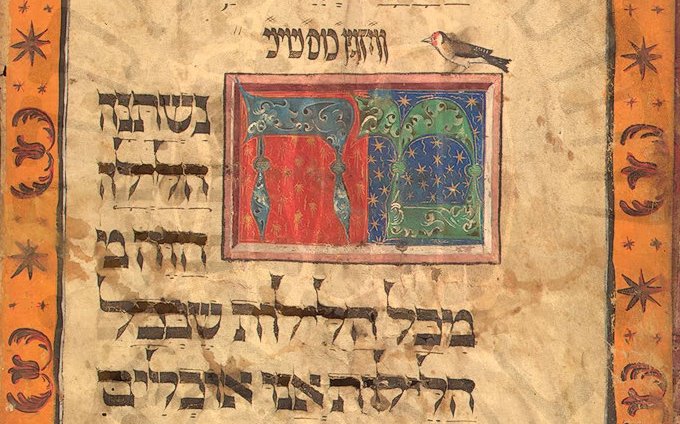 כוס
מה
נשתנה
הלילה
הזה מ
מכל הלילות שבכל
הלילות אנו אוכלים